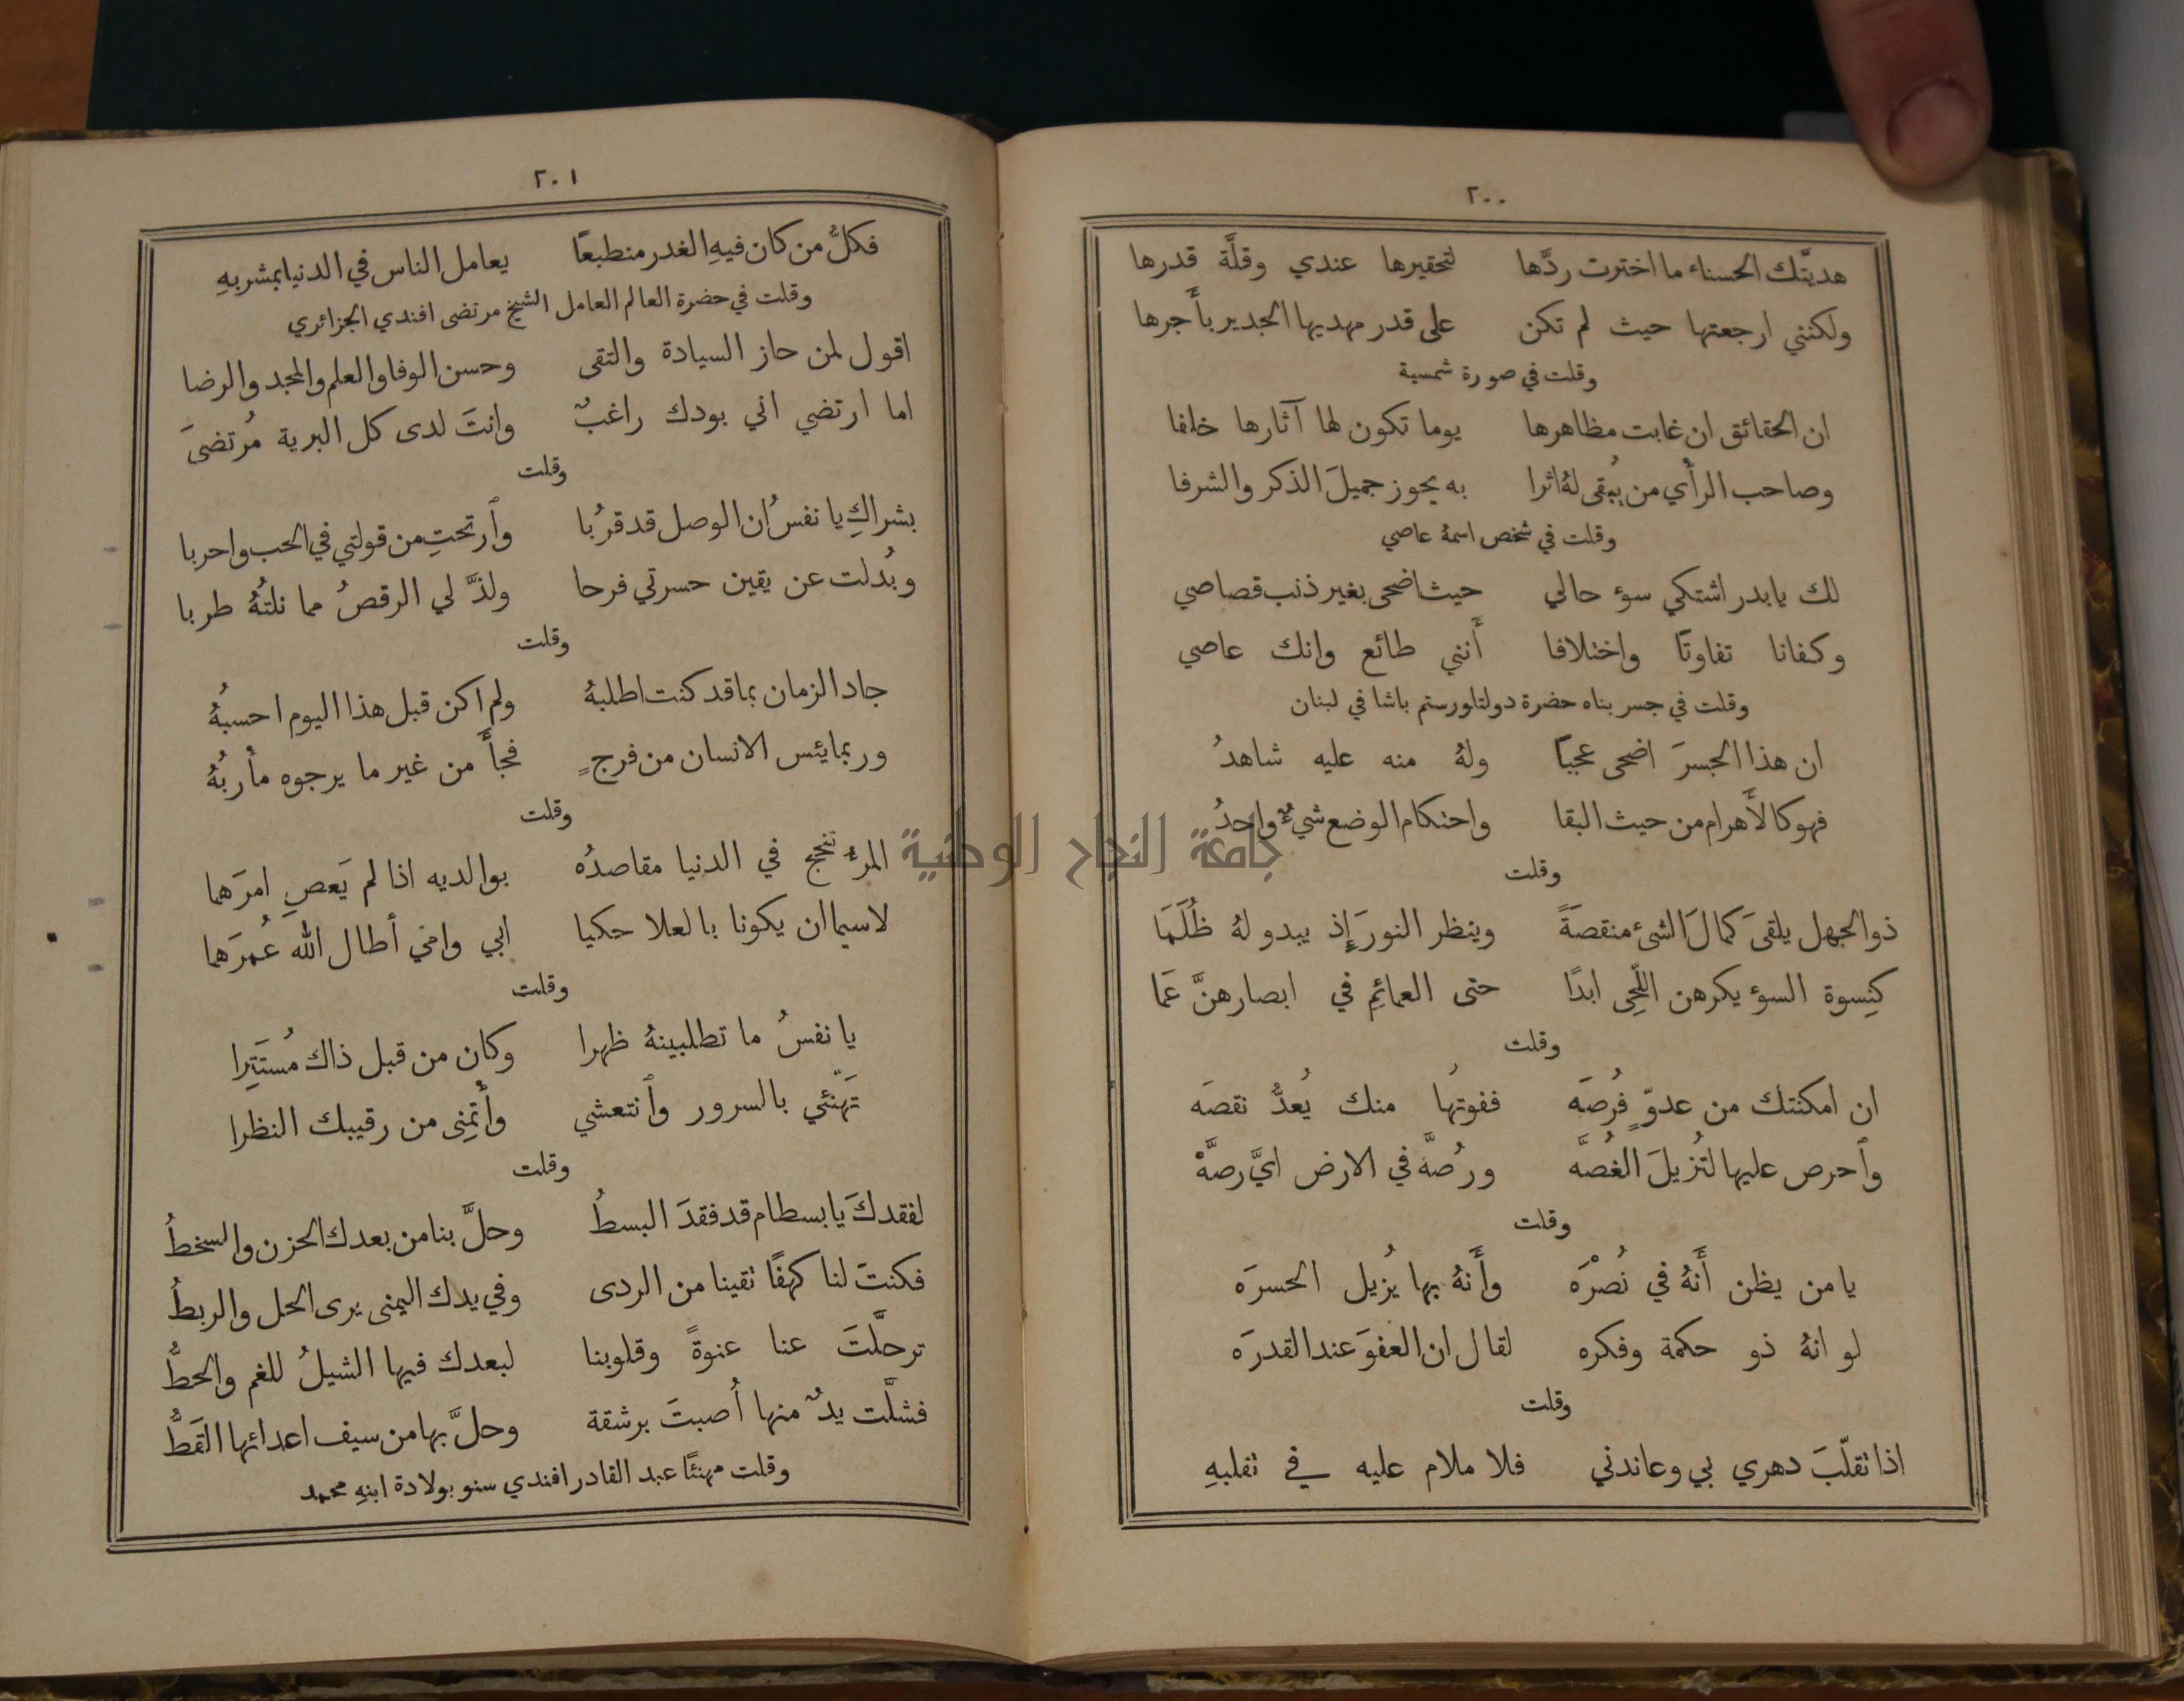 ٢٠٠
هديتَّك الحسناء ما اخترت ردَّها لتحقيرها عندي وقلَّة قدرها
ولكنني ارجعتها حيث لم تكن على قدر مهديها الجدير بأَجرها
وقلت في صورة شمسية
ان الحقائق ان غابت مظاهرها يوما تكون لها آثارها خلفا
وصاحب الرأي من يُبقى لهُ اثرا به يحوز جميلَ الذكر والشرفا
وقلت في شخص اسمهُ عاصي
لك يا بدر اشتكي سوء حالي حيث اضحى بغير ذنب قصاصي
وكفانا تفاوتًا واختلافا أَنني طائع وانك عاصي
وقلت في جسر بناه حضرة دولتلو رستم باشا في لبنان
ان هذا الجسرَ اضحى عجبًا ولهُ منه عليه شاهدُ
فهو كالأَهرام من حيث البقا واحتكام الوضع شيءٌ واحدُ
وقلت
ذو الجهل يلقىَ كمالَ الشئ منقصَةً وينظر النورَ إِذ يبدو لهُ ظُلَمَا
كنِسوة السوء يكرهن اللّحِى ابدًا حتى العمائمِ في ابصارهنَّ عَمَا
وقلت
ان امكنتك من عدوٍّ فُرصَه ففوتهُا منك يُعدُّ نقصَه
وأحرص عليها لتُزيلَ الغُصَّه ورُصهَّ في الارض ايَّ رصَّهْ
وقلت
يا من يظن أَنهُ في نُصْرَه وأَنهُ بها يُزيل الحسرَه
لو انهُ ذو حكمة وفكره لقال ان العفوَ عند القدرَه
وقلت
اذا تقلّبَ دهري بي وعاندني فلا ملام عليه في تقلبهِ
٢٠١
فكلُّ من كان فيهِ الغدر منطبعًا يعامل الناس في الدنيا بمشربهِ
وقلت في حضرة العالم العامل الشيخ مرتضى افندي الجزائري
اقول لمن حاز السيادة والتقى وحسن الوفا والعلم والمجد والرضا
اما ارتضي اني بودك راغبٌ وانتَ لدى كل البرية مُرتضىَ
وقلت
بشراكِ يا نفسُ ان الوصل قد قرُبا وأرتحتِ من قولتي في الحب واحربا
وبُدلت عن يقين حسرتي فرحا ولذَّ لي الرقصُ مما نلتُهُ طربا
وقلت
جاد الزمان بما قد كنت اطلبهُ ولم اكن قبل هذا اليوم احسبهُ
وربما يئس الانسان من فرجٍ فجأَ من غير ما يرجوه مأربُهُ
وقلت
المرءُ تنجح في الدنيا مقاصدُه بوالديه اذا لم يَعصِ امرَهما
لاسيما ان يكونا بالعلا حكيا ابي وامي أطال اللهُ عُمرَهما
وقلت
يا نفسُ ما تطلبينهُ ظهرا وكان من قبل ذاك مُستَتِرا
تَهنّئي بالسرور وأنتعشي وأتمنِى من رقيبك النظرا
وقلت
لفقدكَ يا بسطام قد فقدَ البسطُ وحلَّ بنا من بعدك الحزن والسخطُ
فكنتَ لنا كهفًا تقينا من الردى وفي يدك اليمنى يرى الحل والربطُ
ترحلَّتَ عنا عنوةً وقلوبنا لبعدك فيها الشيلُ للغم والحطُّ
فشلَّت يدٌ منها أُصبتَ برشقة وحلَّ بها من سيف اعدائها القَطُّ
وقلت مهنئًا عبد القادر افندي سنو بولادة ابنهِ محمد
جامعة النجاح الوطنية